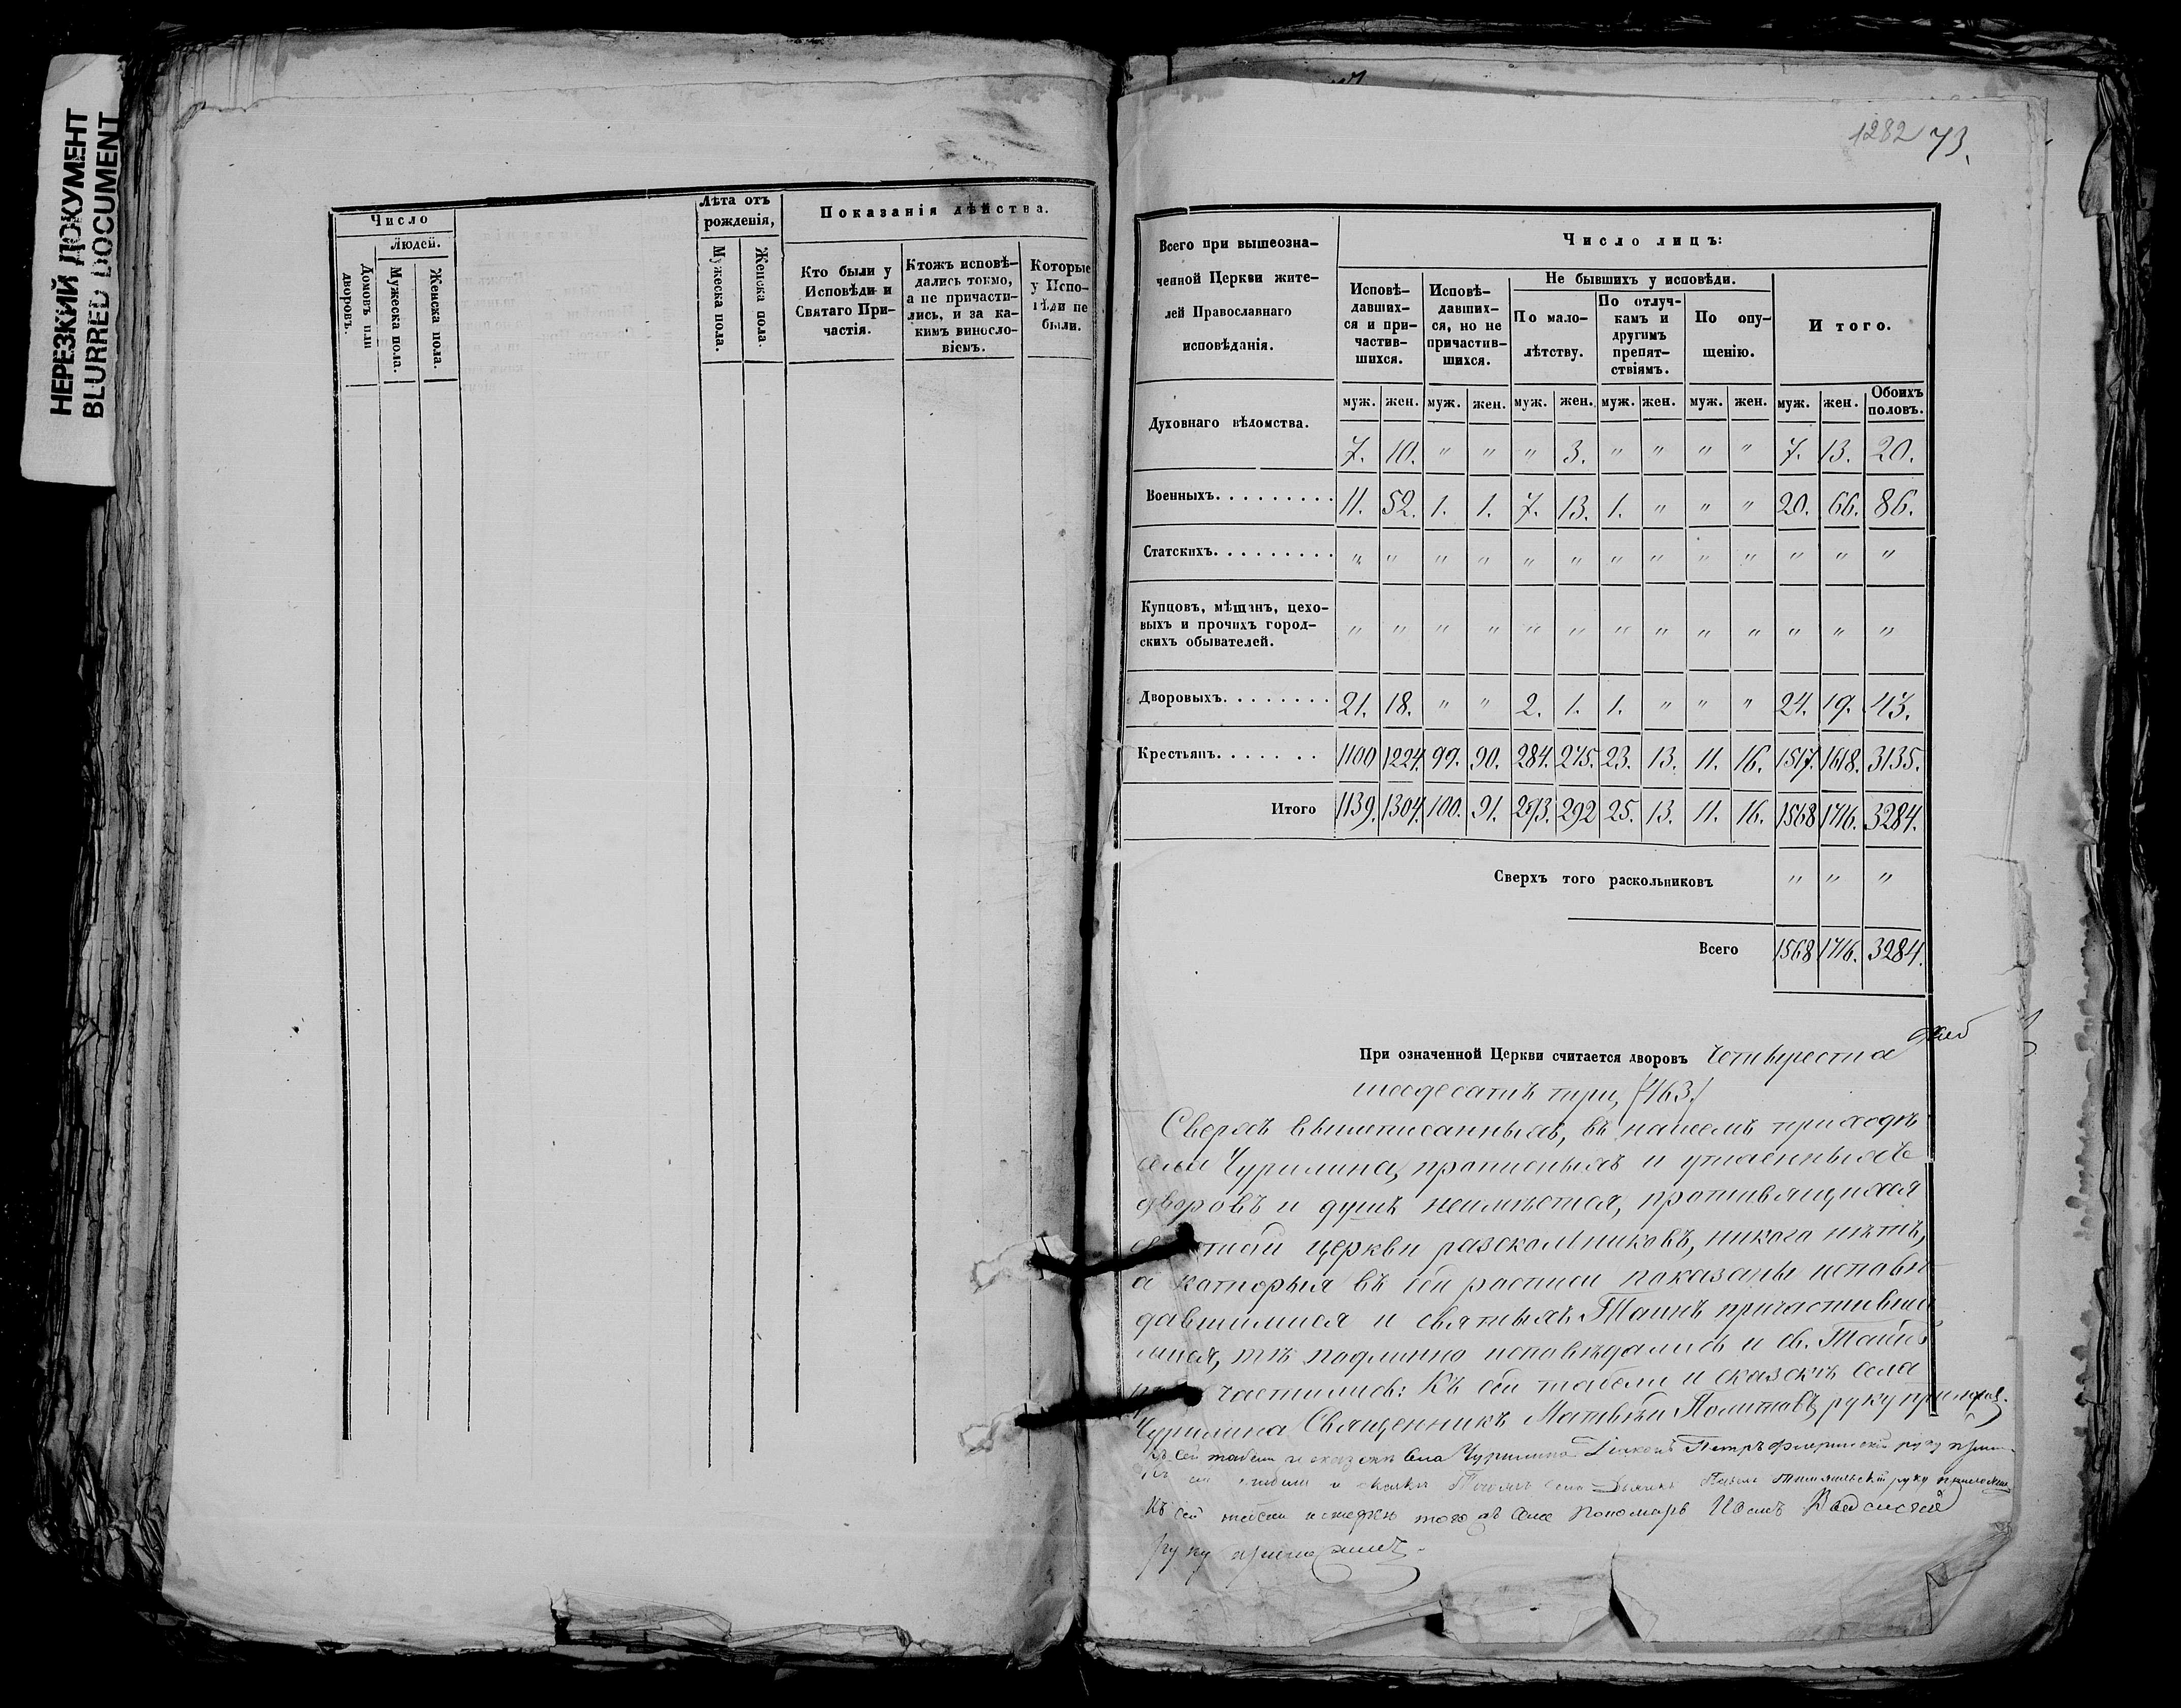 НЕРЕЗКИЙ ДОКУМЕНТ
BLURRED DOCUMENT
Число
Людей.
Домовъ или дворовъ.
Мужеска пола.
Женска пола.
Лѣта отъ рожденія,
Мужеска пола.
Женска пола.
Показанія дѣйства.
Кто были у Исповѣди и Святаго Причастія.
Ктожъ исповѣ-
дались токмо,
а не причасти-
лись, и за ка-
кимъ винosло-
віемъ.
Которые
у Испо-
вѣди не
были.
1282 73.
Всего при вышеозна-
ченной Церкви жите-
лей Православнаго
исповѣданія.
Число лицъ:
Исповѣ-
давших-
ся и при-
частив-
шихся.
Исповѣ-
давших-
ся, но не
причастив-
шихся.
Не бывшихъ у исповѣди.
По мало-
лѣтству.
По отлуч-
камъ и
другимъ
препят-
ствіямъ.
По опу-
щенію.
И того.
муж. жен. муж. жен. муж. жен. муж. жен. муж. жен. муж. жен. Обоихъ половъ.
Духовнаго вѣдомства. 7. 10. " " " 3. " " " " 7. 13. 20.
Военныхъ. . . . . . . . . 11. 52. 1. 1. 7. 13. 1. " " " 20. 66. 86.
Статскихъ. . . . . . . . . " " " " " " " " " " " " "
Купцовъ, мѣщанъ, цехо-
выхъ и прочихъ город-
скихъ обывателей. " " " " " " " " " " " " "
Дворовыхъ. . . . . . . . 21. 18. " " 2. 1. 1. " " " 24. 19. 43.
Крестьянъ. . . . . . . 1100 1224. 99. 90. 284. 275. 23. 13. 11. 16. 1517. 1618. 3135.
Итого 1139. 1304. 100. 91. 293. 292 25. 13. 11. 16. 1568 1716. 3284.
Сверхъ того раскольниковъ " " "
Всего 1568 1716. 3284.
При означенной Церкви считается дворовъ Четыреста
шесдесатъ три, (463)
Сверхъ вышеписанныхъ, въ нашемъ приходѣ
села Чурилина, прописныхъ и утаенныхъ
дворовъ и душъ неимѣется, противящихся
церкви разскольниковъ, никого нѣтъ,
а которыя въ сей росписи показаны исповѣ-
давшимися и святыхъ Таинъ причастивши-
мися, тѣ подлинно исповѣдались и св. Таинъ
частились: Къ сей табели и сказскѣ села
Чурилина Священникъ Матвѣй Политовъ руку приложилъ.
Къ сей табели и сказскѣ села Чурилина Діаконъ Петръ руку прил.
и Павелъ руку приложилъ
Къ сей того жъ села Пономарь Иванъ
руку приложилъ